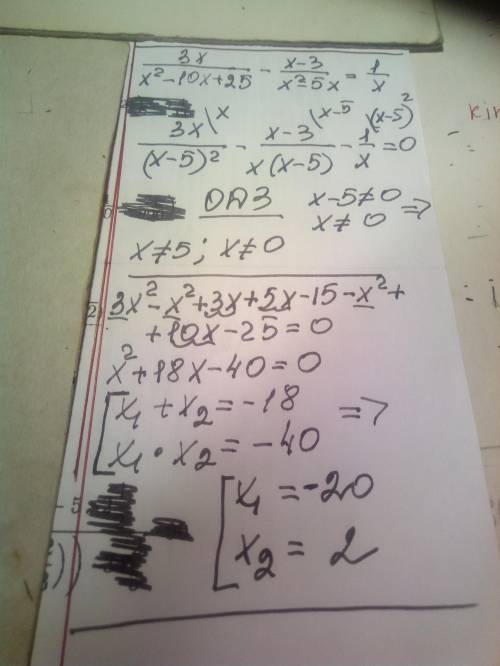 3x/(x²-10x+25) - (x-3)/(x²-5x) = 1/x
3x\x/(x-5)² - (x-3)\x-5/(x(x-5)) - 1\(x-5)²/x = 0
ОДЗ x-5≠0
x≠0 =>
x≠5; x≠0
3x²-x²+3x+5x-15-x²+
+10x-25=0
x²+18x-40=0
[x₁+x₂=-18 =>
x₁·x₂=-40
[x₁=-20
x₂=2